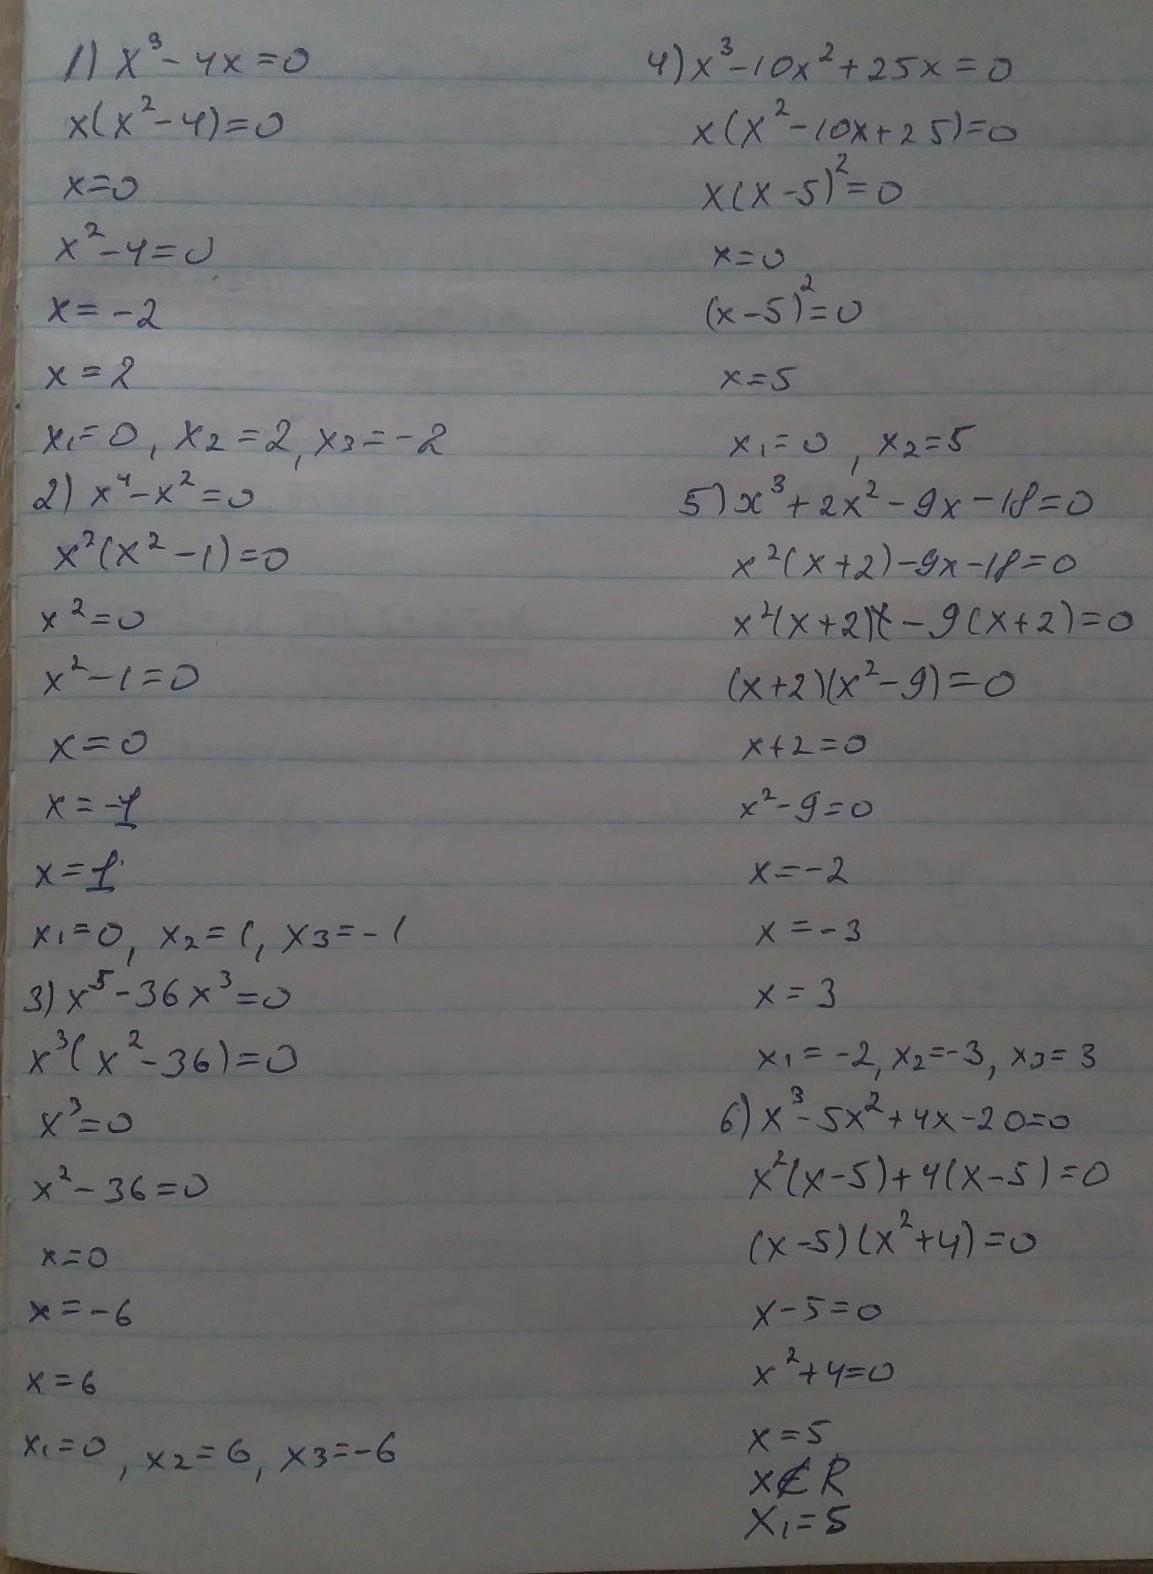 1) x³-4x=0
x(x²-4)=0
x=0
x²-4=0
x=-2
x=2
x₁=0, x₂=2, x₃=-2
2) x⁴-x²=0
x²(x²-1)=0
x²=0
x²-1=0
x=0
x=-1
x=1
x₁=0, x₂=1, x₃=-1
3) x⁵-36x³=0
x³(x²-36)=0
x³=0
x²-36=0
x=0
x=-6
x=6
x₁=0, x₂=6, x₃=-6
4) x³-10x²+25x=0
x(x²-10x+25)=0
x(x-5)²=0
x=0
(x-5)²=0
x=5
x₁=0, x₂=5
5) x³+2x²-9x-18=0
x²(x+2)-9x-18=0
x²(x+2)-9(x+2)=0
(x+2)(x²-9)=0
x+2=0
x²-9=0
x=-2
x=-3
x=3
x₁=-2, x₂=-3, x₃=3
6) x³-5x²+4x-20=0
x²(x-5)+4(x-5)=0
(x-5)(x²+4)=0
x-5=0
x²+4=0
x=5
x∉R
x₁=5